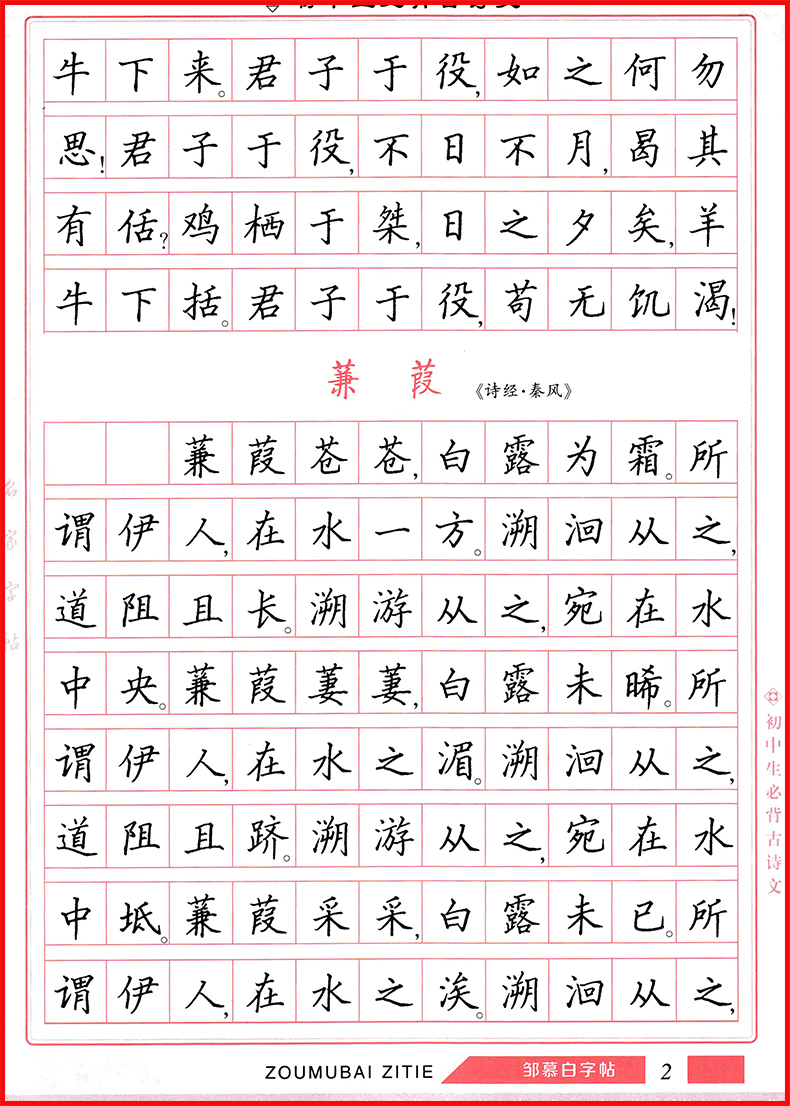 牛下来。君子于役,如之何勿
思!君子于役,不日不月,曷其
有佸?鸡栖于桀,日之夕矣,羊
牛下括。君子于役,苟无饥渴!
蒹 葭 《诗经·秦风》
蒹葭苍苍,白露为霜。所
谓伊人,在水一方。溯洄从之,
道阻且长。溯游从之,宛在水
中央。蒹葭萋萋,白露未晞。所
谓伊人,在水之湄。溯洄从之,
道阻且跻。溯游从之,宛在水
中坻。蒹葭采采,白露未已。所
谓伊人,在水之涘。溯洄从之,
名家字帖
初中生必背古诗文
ZOUMUBAI ZITIE 邹慕白字帖 2